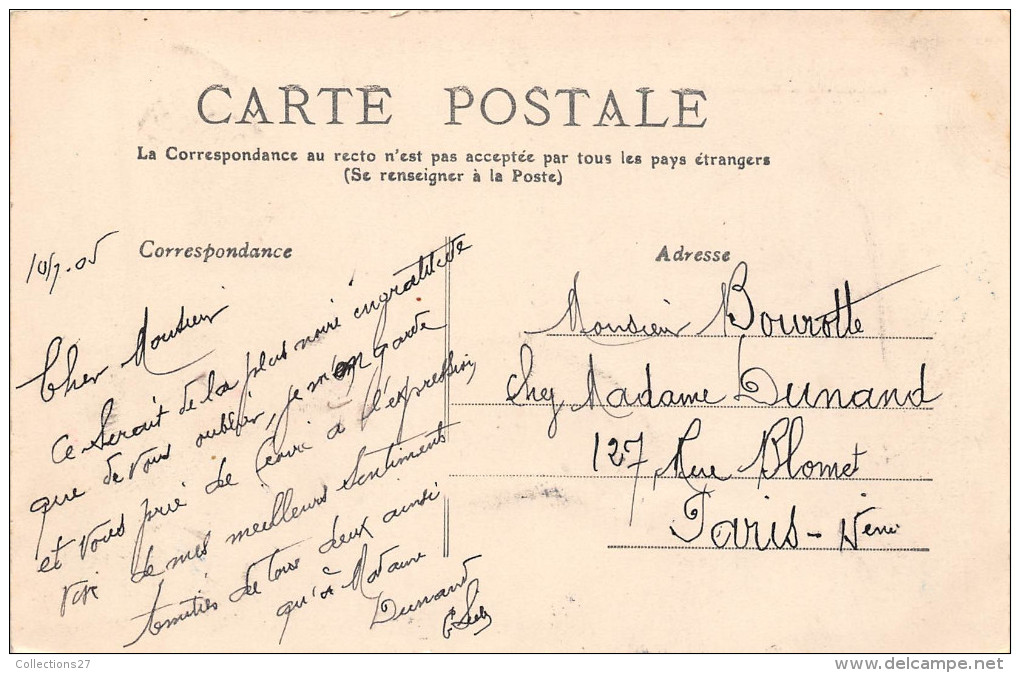 CARTE POSTALE
La Correspondance au recto n'est pas acceptée par tous les pays étrangers
(Se renseigner à la Poste)
Correspondance
Adresse
10/7-05
Cher Monsieur
Ce serait de la plus noire ingratitude
que de vous oublier, je m'en garde
et vous prie de à l'expression
de mes meilleurs sentiments
Amitiés de tous deux ainsi
qu'à Madame
Dunand
Monsieur Bourotte
chez Madame Dunand
127 Rue Blomet
Paris -
Collections27
delcampe.net